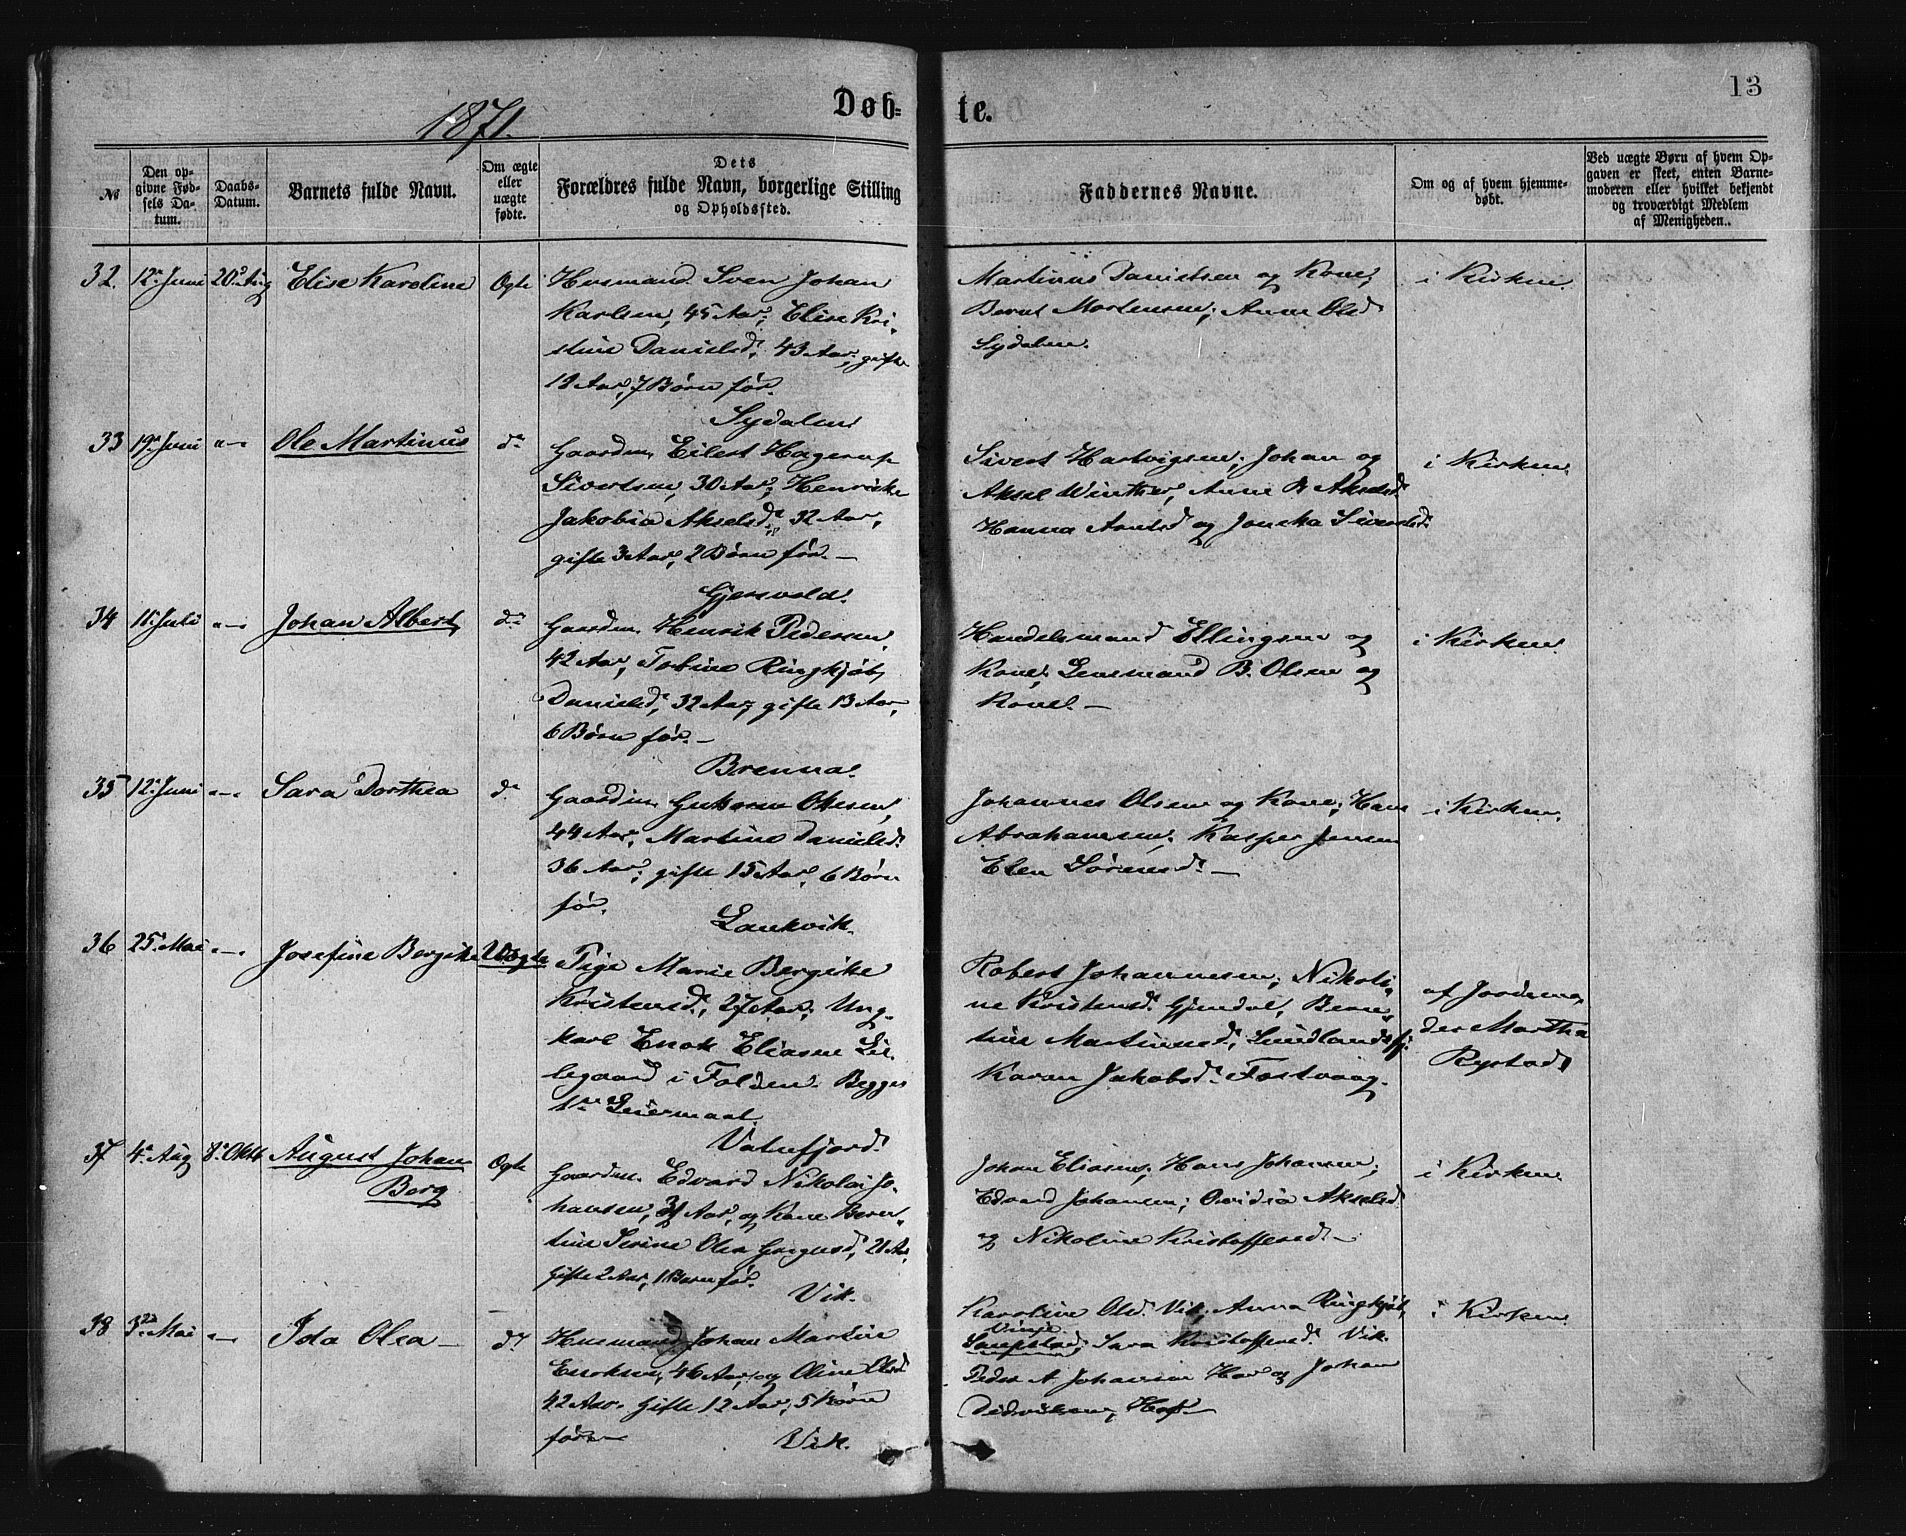 13
1871.
Døb-
te.
№
Den op-
givne Fød-
sels Da-
tum.
Daabs-
Datum.
Barnets fulde Navn.
Om ægte
eller
uægte
fødte.
Dets
Forældres fulde Navn, borgerlige Stilling
og Opholdssted.
Faddernes Navne.
Om og af hvem hjemme-
døbt.
Ved uægte Børn af hvem Op-
gaven er skeet, enten Barne-
moderen eller hvilket bekjendt
og troværdigt Medlem
af Menigheden.
32. 12 Juni 20 Aug Elise Karoline Ægte
Husmand Sven Johan
Karlsen, 45 Aar; Elise Kri-
stine Danielsd. 43 Aar; gifte
12 Aar, 7 Børn før.
Sydalen
Martinus Danielsen og Kone;
Bernt Mortensen; Anne Olsd
Sydalen.
i Kirken
33 19 Juni Ole Martinus do
Gaardm. Eilert Hagerup
Sivertsen, 30 Aar; Henrikke
Jakobia Akselsd. 32 Aar,
gifte 3 Aar, 2 Børn før. —
Gjersvold.
Sivert Hartvigsen; Johan og
Aksel Winther, Anne B Akselsd.
Hanna Arntsd og Jonetta Sivertsd.
i Kirken
34 11 Juli Johan Albert do
Gaardm. Henrik Pedersen,
42 Aar, Tobine Ringkjøb
Danielsd, 32 Aar, gifte 13 Aar,
6 Børn før. —
Brenna.
Handelsmand Ellingsen og
Kone; Lensmand B. Olsen og
Kone. —
i Kirken
35 12 Juni Sara Dorthea do
Gaardm. Guttorm Olsen,
44 Aar, Martine Danielsd.
36 Aar; gifte 15 Aar, 6 Børn
før.
Laukvik.
Johannes Olsen og Kone; Hans
Abrahamsen; Kasper Jensen
Elen Sørensd. —
i Kirken
36 25 Mai Josefine Bergitte Uægte
Pige Marie Bergitte
Kristensd., 27 Aar, Ung-
karl Enok Eliasen Lil-
legaard i Folden. Begges
1ste Leiermaal.
Vatnfjord.
Robert Johannesen; Nikoli-
ne Kristensd. Gjendal, Beren-
tine Martinusd; Sundlandsfj.
Karen Jakobsd. Fostvaag.
af Jordemo-
der Martha
Rystad
37 4 Aug 8 Oktb August Johan
Berg
Ægte
Gaardm. Edvard Nikolai Jo-
hansen, Aar, og Kone Beren-
tine Serine Olea Gregusd, 21 Aar,
gifte 2 Aar, 1 Barn før.
Vik.
Johan Eliasen, Hans Johansen;
Edvard Johansen; Ovidia Akselsd
og Nikoline Kristoffersd. —
i Kirken
38 3 Mai Ida Olea — do
Husmand Johan Martin
Enoksen, 46 Aar, og Oline Olsd
42 Aar. gifte 12 Aar, 5 Børn
før —
Vik.
Karoline Olsd. Vik, Anna Ringkjøb,
Vinje
Sara Kristoffersd. Vik.
Peder A. Johansen Hov og Johan
Didriksen, Hof —
i Kirken